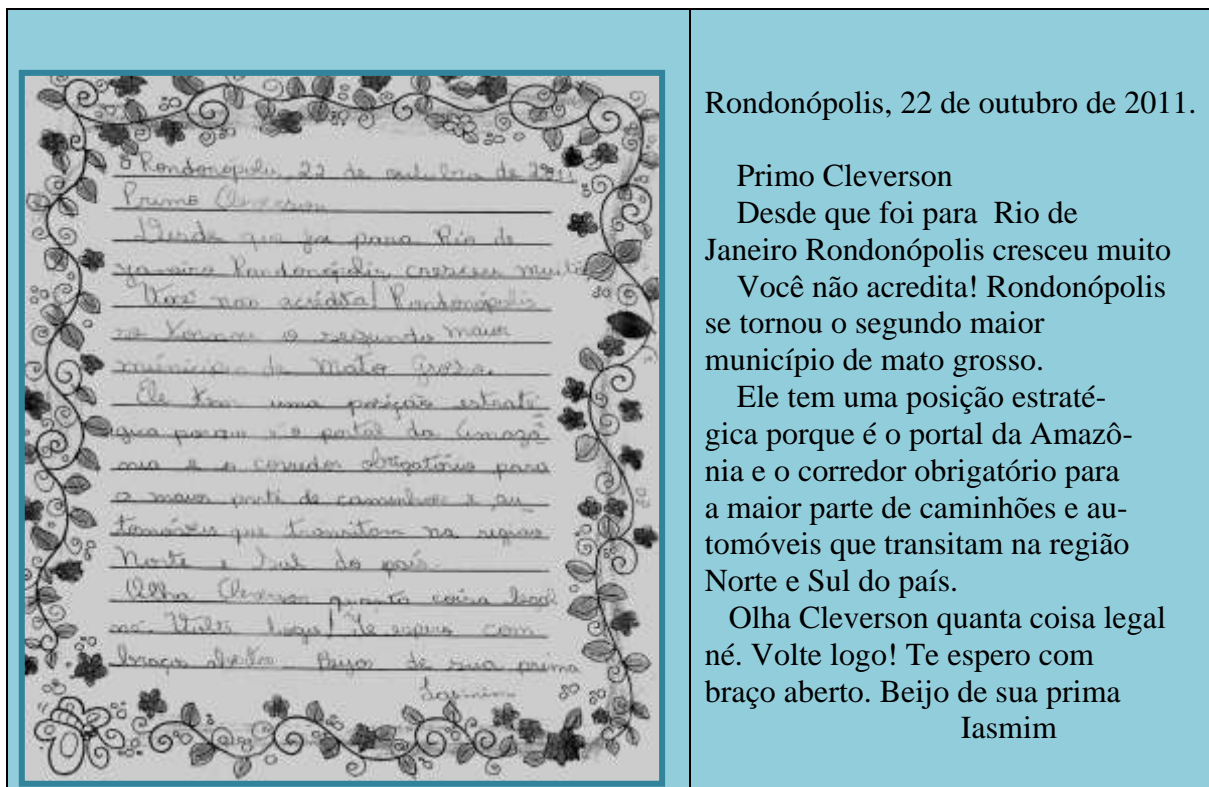 Rondonópolis, 22 de outubro de 2011
Primo Cleverson
Desde que foi para Rio de
Janeiro Rondonópolis cresceu muito
Você nao acredita! Rondonópolis
se tornou o segundo maior
município de Mato Grosso.
Ele tem uma posição estraté-
gica porque é o portal da Amazô-
nia e o corredor obrigatório para
a maior parte de caminhões e au-
tomóveis que transitam na região
Norte e Sul do país.
Olha Cleverson quanta coisa legal
né. Volte logo! Te espero com
braço aberto. Beijo de sua prima
Iasmim
Rondonópolis, 22 de outubro de 2011.
Primo Cleverson
Desde que foi para Rio de
Janeiro Rondonópolis cresceu muito
Você não acredita! Rondonópolis
se tornou o segundo maior
município de mato grosso.
Ele tem uma posição estraté-
gica porque é o portal da Amazô-
nia e o corredor obrigatório para
a maior parte de caminhões e au-
tomóveis que transitam na região
Norte e Sul do país.
Olha Cleverson quanta coisa legal
né. Volte logo! Te espero com
braço aberto. Beijo de sua prima
Iasmim